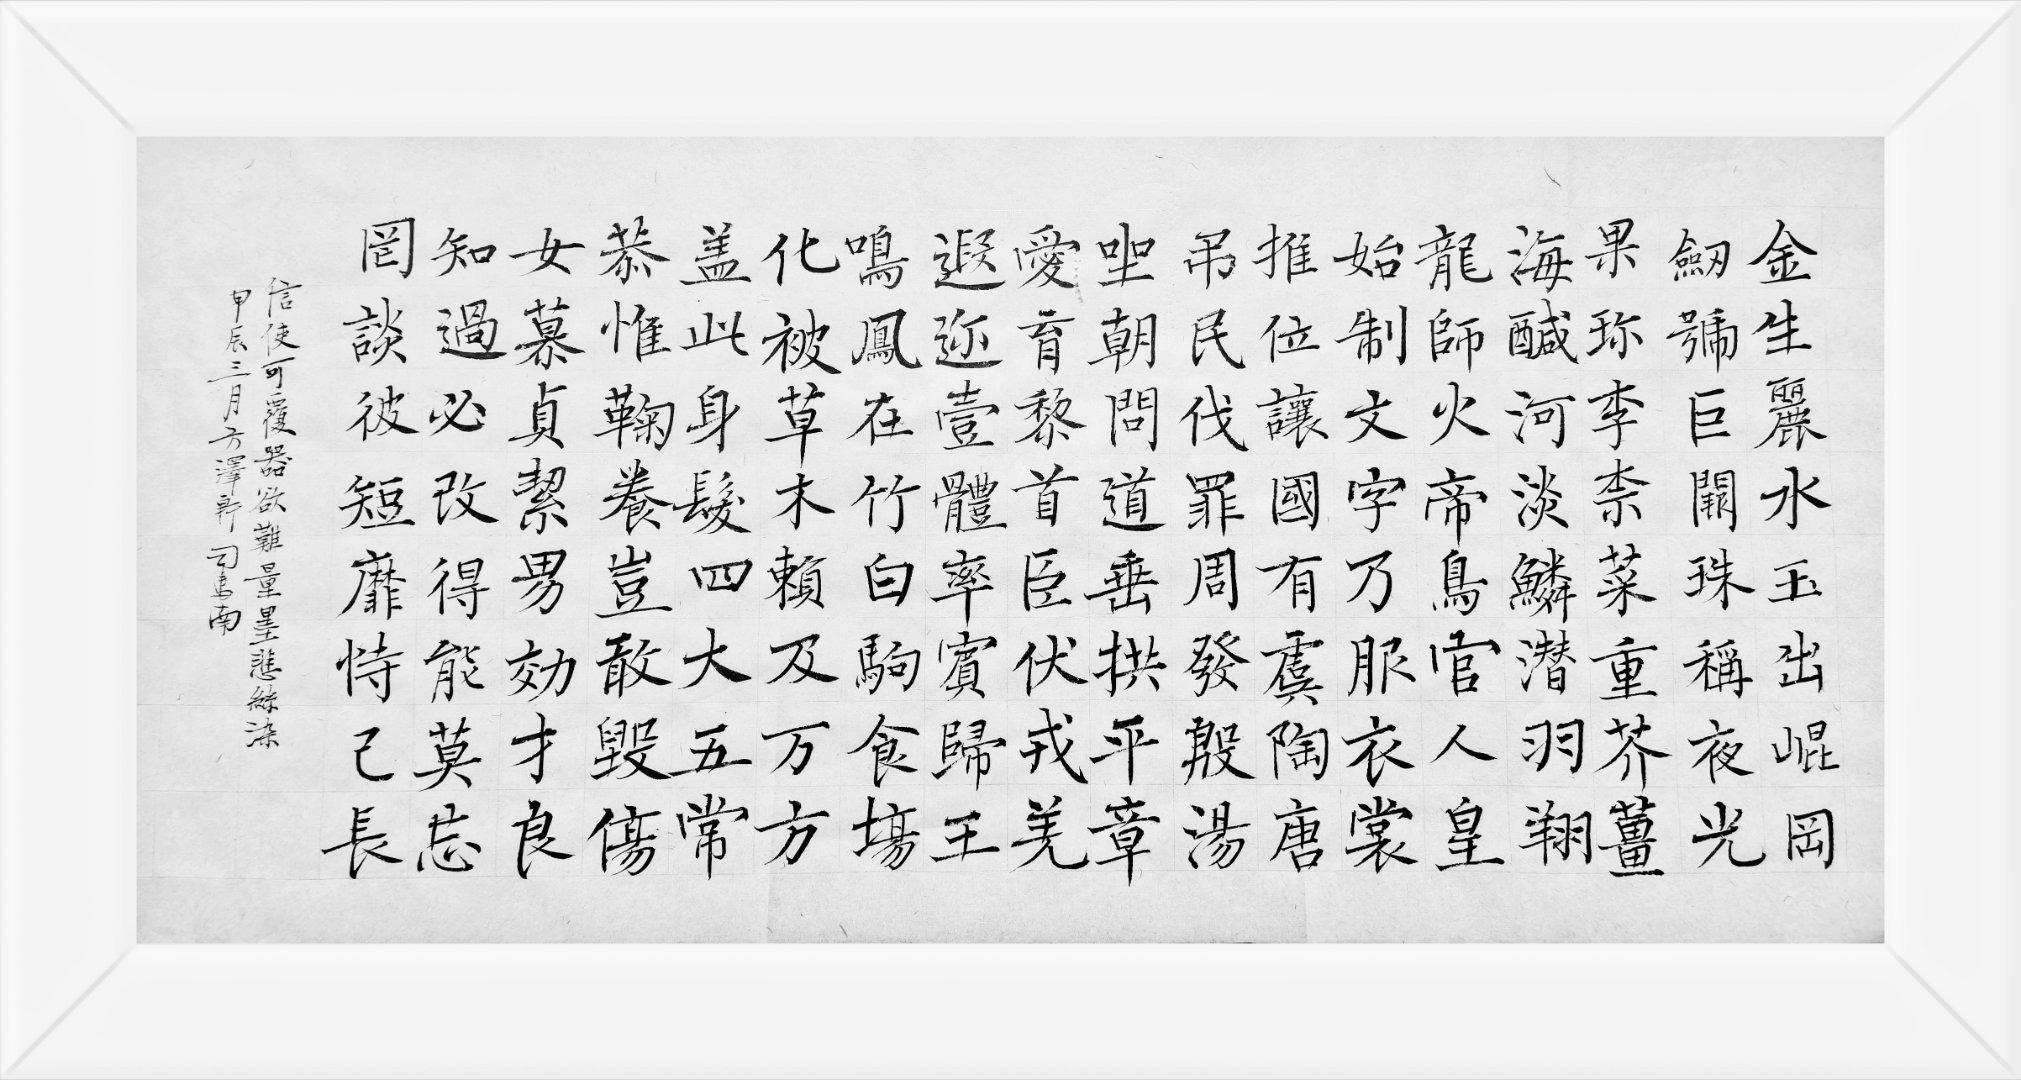 金生麗水玉出崐岡
劒號巨闕珠稱夜光
果珎李柰菜重芥薑
海醎河淡鱗潛羽翔
龍師火帝鳥官人皇
始制文字乃服衣裳
推位讓國有虞陶唐
吊民伐罪周發殷湯
坐朝問道垂拱平章
愛育黎首臣伏戎羌
遐迩壹體率賓歸王
鳴鳳在竹白駒食場
化被草木賴及万方
盖此身髮四大五常
恭惟鞠養豈敢毀傷
女慕貞絜男効才良
知過必改得能莫忘
罔談彼短靡恃己長
信使可覆器欲難量墨悲絲染
甲辰三月方澤